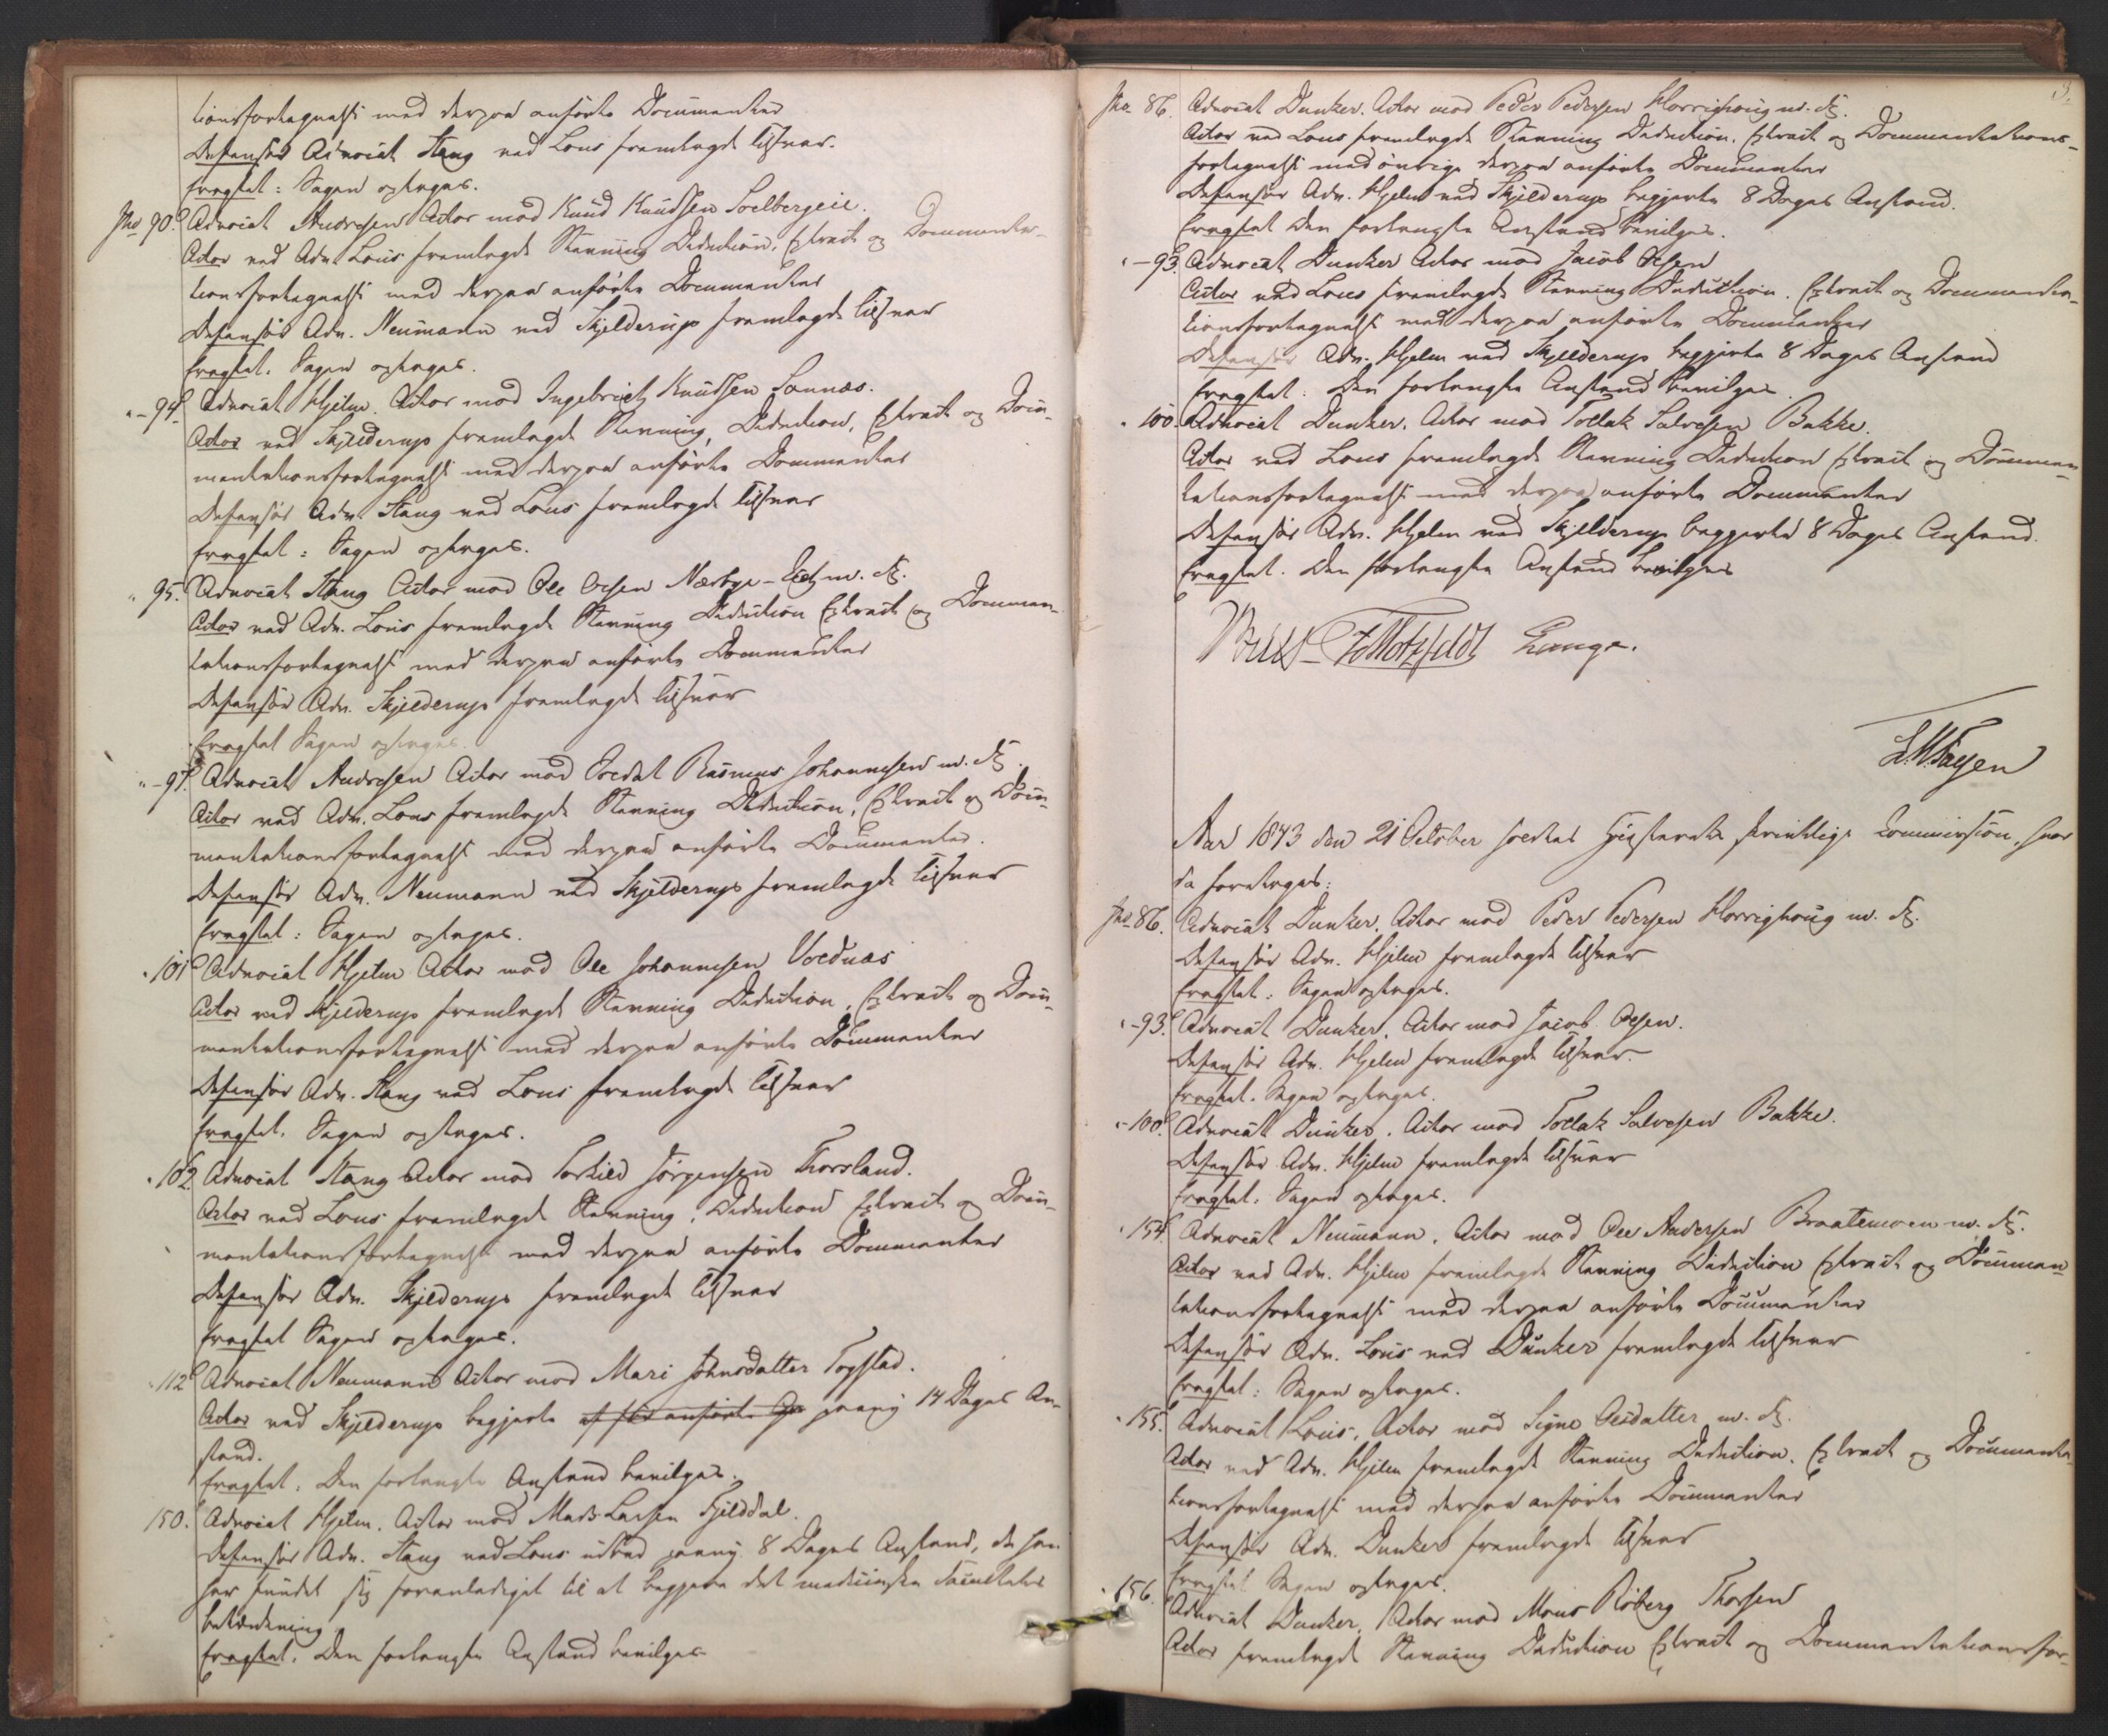 tionsfortegnelse med derpaa anførte Documenter
Defensor Advocat Stang ved Lous fremlagde Tilsvar.
Eragtet: Sagen optages.
No 90. Advocat Andresen Actor mod Knud Knudsen Soelbergeie.
Actor ved Adv. Lous fremlagde Stevning Deduction, Extract og Documenta-
tionsfortegnelse med derpaa anførte Documenter
Defensor Adv. Neumann ved Skjelderup fremlagde Tilsvar
Eragtet. Sagen optages.
" - 94. Advocat Hjelm. Actor mod Ingebrigt Knudsen Sannæs.
Actor ved Skjelderup fremlagde Stevning, Deduction, Extract og Docu-
mentationsfortegnelse med derpaa anførte Documenter
Defensor Adv. Stang ved Lous fremlagde Tilsvar
Eragtet: Sagen optages.
" 95. Advocat Stang Actor mod Ole Olsen Nærbye-Eie m. Fl.
Actor ved Adv. Lous fremlagde Stevning Deduction Extract og Documen-
tationsfortegnelse med derpaa anførte Documenter
Defensor Adv. Skjelderup fremlagde Tilsvar
Eragtet Sagen optages.
" - 97. Advocat Andresen Actor mod Soldat Rasmus Johannesen m. Fl.
Actor ved Adv. Lous fremlagde Stevning Deduction, Extract og Docu-
mentationsfortegnelse med derpaa anførte Documenter.
Defensor Adv. Neumann ved Skjelderup fremlagde Tilsvar
Eragtet: Sagen optages.
" 101 Advocat Hjelm Actor mod Ole Johannesen Voldnæs
Actor ved Skjelderup fremlagde Stevning Deduction, Extract og Docu-
mentationsfortegnelse med derpaa anførte Documenter
Defensor Adv. Stang ved Lous fremlagde Tilsvar
Eragtet. Sagen optages.
" 102. Advocat Stang Actor mod Torkild Jørgensen Thorsland.
Actor ved Lous fremlagde Stevning, Deduction Extract og Docu-
mentationsfortegnelse med derpaa anførte Documenter
Defensor Adv. Skjelderup fremlagde Tilsvar
Eragtet Sagen optages.
" 112 Advocat Neumann Actor mod Mari Johnsdatter Fogstad.
Actor ved Skjelderup begjerte af her anførte paany 14 Dages An-
stand.
Eragtet. Den forlangte Anstand bevilges.
150. Advocat Hjelm. Actor mod Mads Larsen Fjelddal.
Defensor Adv. Stang ved Lous udbad paany 8 Dages Anstand, da han
har fundet sig foranlediget til at begjere det medicinske Facultets
betænkning
Eragtet. Den forlangte Anstand bevilges
3.
No. 86. Advocat Dunker. Actor mod Peder Pedersen Horrighoug m. Fl.
Actor ved Lous fremlagde Stevning Deduction, Extract og Documentations-
fortegnelse med øvrige derpaa anførte Documenter
Defensor Adv. Hjelm ved Skjelderup begjerte 8 Dages Anstand.
Eragtet Den forlangte Anstand bevilges.
" - 93. Advocat Dunker Actor mod Jacob Olsen
Actor ved Lous fremlagde Stevning Deduction, Extract og Documenta-
tionsfortegnelse med derpaa anførte Documenter
Defensor Adv. Hjelm ved Skjelderup begjerte 8 Dages Anstand
Eragtet: Den forlangte Anstand bevilges.
" 100. Advocat Dunker. Actor mod Tollak Salvesen Bakke.
Actor ved Lous fremlagde Stevning Deduction Extract og Documen-
tationsfortegnelse med derpaa anførte Documenter
Defensor Adv. Hjelm ved Skjelderup begjerte 8 Dages Anstand.
Eragtet. Den forlangte Anstand bevilges
Bull Motzfeldt Lange.
Aar 1843 den 21 October holdtes Høiesterets skriftlige Commission, hvor
da foretoges:
No. 86. Advocat Dunker. Actor mod Peder Pedersen Horrighoug m. Fl.
Defensor Adv. Hjelm fremlagde Tilsvar
Eragtet: Sagen optages.
" - 93. Advocat Dunker. Actor mod Jacob Olsen.
Defensor Adv. Hjelm fremlagde Tilsvar.
Eragtet. Sagen optages.
" - 100. Advocat Dunker. Actor mod Tollak Salvesen Bakke.
Defensor Adv. Hjelm fremlagde Tilsvar
Eragtet. Sagen optages.
" 154. Advocat Neumann. Actor mod Ole Andersen Braatemoen m. Fl.
Actor ved Adv. Hjelm fremlagde Stevning Deduction Extract og Documen-
tationsfortegnelse med derpaa anførte Documenter
Defensor Adv. Lous ved Dunker fremlagde Tilsvar
Eragtet: Sagen optages.
" 155. Advocat Lous, Actor mod Signe Olsdatter m. Fl.
Actor ved Adv. Hjelm fremlagde Stevning Deduction, Extract og Documenta-
tionsfortegnelse med derpaa anførte Documenter
Defensor Adv. Dunker fremlagde Tilsvar
Eragtet Sagen optages.
" 156. Advocat Dunker, Actor mod Mons Roberg Thorsen
Actor fremlagde Stevning Deduction Extract og Documentationsfor-